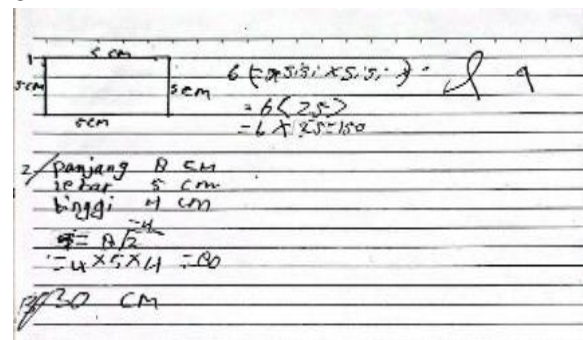 1 5 cm
5 cm 5 cm
5 cm
6 ( sisi x sisi )
= 6 (25)
= 6 x 25 = 150
2/ panjang 8 cm
lebar 5 cm
tinggi 4 cm
= 8/2 = 4
= 4 x 5 x 4 = 80
30 cm